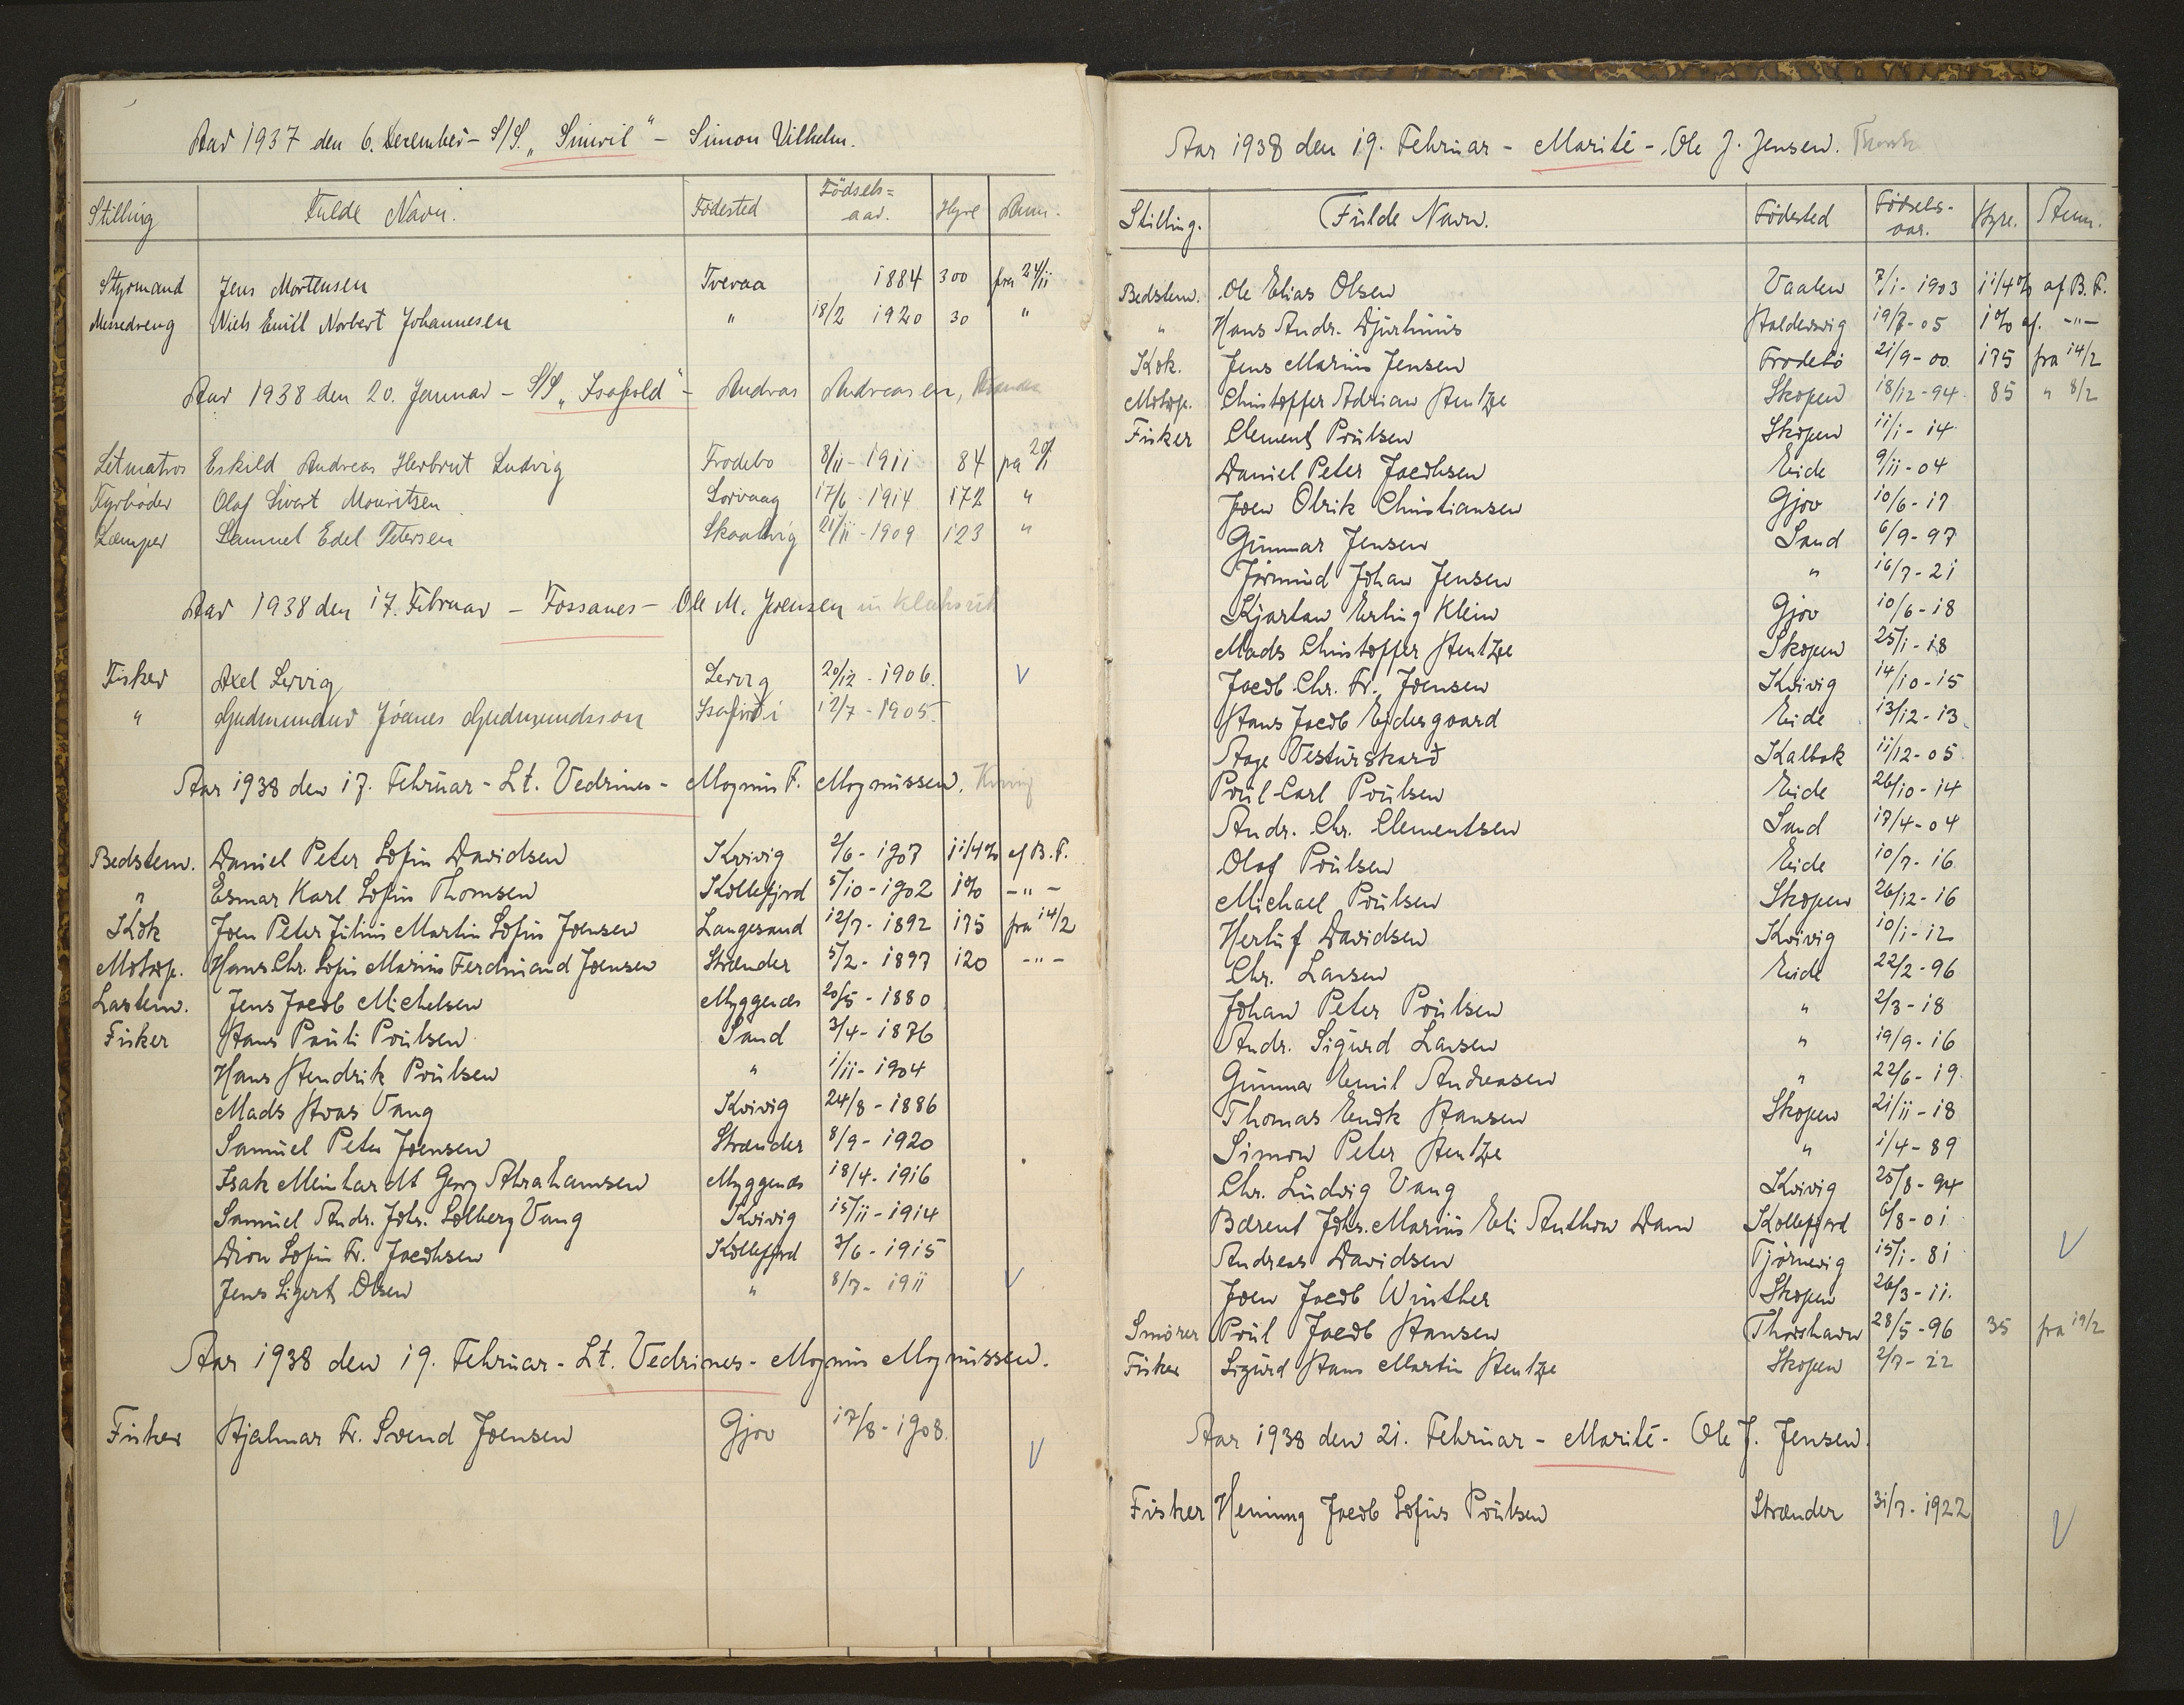 Aar 1937 den 6. Dezember - S/S. „Sinvil" - Simon Vilhelm.
Stilling Fulde Navn. Födested Födsels= aar. Hyre Anm.
Styrmand Jens Mortensen Tveraa 1884 300 fra 24/11
Messedreng Niels Emil Norbert Johannesen " 18/2 1920 30 "
Aar 1938 den 20. Januar - S/S „Isafold" - Andras Andreasen,
Letmatros Eskild Andreas Herbrut Ludvig Frodebo 8/11 - 1911 84 fra 20/1
Fyrböder Olaf Sivert Mouritsen Sorvaag 17/6 - 1914 172 "
Læmper Samuel Edel Petersen Skaalvig 21/11 - 1909 123 "
Aar 1938 den 17. Februar - Fossanes - Ole M. Joensen in Klaksvik
Fisker Axel Lervig Lervig 20/12 - 1906. V
" Gudmundur Jóanes Gudmundsson Isafirdi 12/7 - 1905.
Aar 1938 den 17. Februar - Lt. Vedrines - Mognus F. Mognussen.
Bedstem. Daniel Peter Sofus Davidsen Kvivig 2/6 - 1907 1 1/4% af B.F.
" Esmar Karl Sofus Thomsen Kollefjord 5/10 - 1902 1% - " -
Kok Joen Peter Julius Martin Sofus Joensen Langesand 12/7 - 1892 175 fra 14/2
Motorp. Hans Chr. Sofus Marius Ferdinand Joensen Strænder 5/2 - 1897 120 - " -
Lastem. Jens Jacob Michelsen Myggenæs 20/5 - 1880
Fisker Hans Pauli Poulsen Sand 3/4 - 1876
Hans Hendrik Poulsen " 1/11 - 1904
Mads Hvas Vang Kvivig 24/8 - 1886
Samuel Peter Joensen Strænder 8/9 - 1920
Isak Meinhardt Georg Abrahamsen Myggenæs 18/4 - 1916
Samuel Andr. Johs. Solberg Vang Kvivig 15/11 - 1914
Dion Sofus Fr. Jacobsen Kollefjord 7/6 - 1915
Jens Sigert Olsen " 8/7 - 1911 V
Aar 1938 den 19. Februar - Lt. Vedrines - Mognus Mognussen.
Fisker Hjalmar Fr. Svend Joensen Gjov 17/8 - 1908. V
Aar 1938 den 19. Februar - Marité - Ole J. Jensen.
Stilling. Fulde Navn. Födested Födsels- aar. Hyre. Anm.
Bedstem. Ole Elias Olsen Vaalen 7/1 - 1903 1 1/4% af B.F.
" Hans Andr. Djurhuus Haldersvig 19/7 - 05 1% af. - " -
Kok. Jens Marius Jensen Frodebö 21/9 - 00. 175 fra 14/2
Motorp. Christoffer Adrian Hentze Skopen 18/12 - 94. 85 " 8/2
Fisker Clement Poulsen Skopen 11/1 - 14.
Daniel Peter Jacobsen Eide 9/11 - 04
Joen Olrik Christiansen Gjov 10/6 - 17
Gunnar Jensen Sand 6/9 - 97
Jörmund Johan Jensen " 16/7 - 21
Kjartan Erling Klein Gjov 10/6 - 18
Mads Christoffer Hentze Skopen 25/1 - 18
Jacob Chr. Fr. Joensen Kvivig 14/10 - 15
Hans Jacob Ejdesgaard Eide 13/12 - 13.
Aage Vesturskard Kalbak 11/12 - 05.
Poul Carl Poulsen Eide 26/10 - 14
Andr. Chr. Clementsen Sand 17/4 - 04
Olaf Poulsen Eide 10/7 - 16.
Michael Poulsen Skopen 26/12 - 16
Herluf Davidsen Kvivig 10/1 - 12
Chr. Larsen Eide 22/2 - 96
Johan Peter Poulsen " 2/3 - 18
Andr. Sigurd Larsen " 19/9 - 16
Gunnar Emil Andreasen " 22/6 - 19.
Thomas Hansen Skopen 21/11 - 18
Simon Peter Hentze " 1/4 - 89
Chr. Ludvig Vang Kvivig 25/8 - 94
Bærent Johs. Marius Eli Anthon Dam Kollefjord 6/8 - 01
Andreas Davidsen Tjörnevig 15/1 - 81 V
Joen Jacob Winther Skopen 26/3 - 11.
Smörer Poul Jacob Hansen Thorshavn 28/5 - 96 35 fra 19/2
Fisker Sigurd Hans Martin Hentze Skopen 2/7 - 22
Aar 1938 den 21. Februar - Marité - Ole J. Jensen.
Fisker Henning Jacob Sofus Poulsen Strænder 31/7 - 1922 V